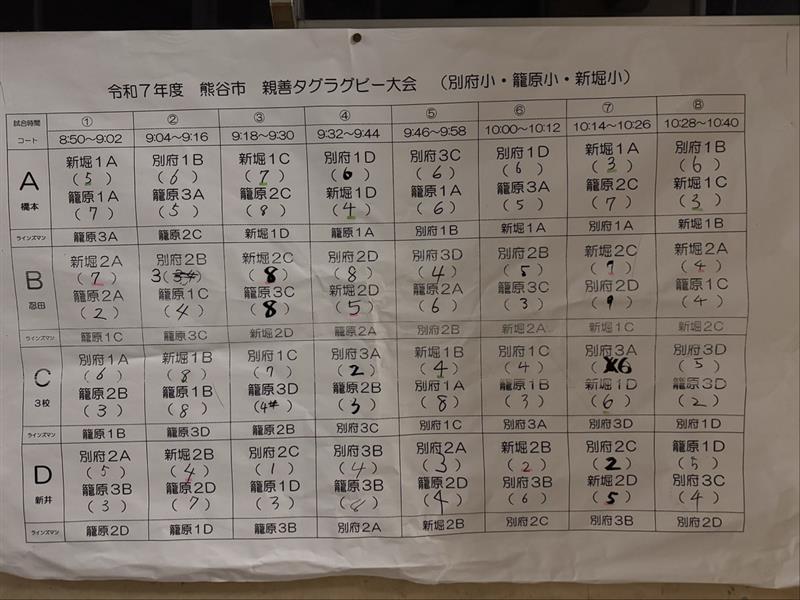 令和7年度 熊谷市 親善タグラグビー大会 (別府小・籠原小・新堀小)
試合時間 ① ② ③ ④ ⑤ ⑥ ⑦ ⑧
コート 8:50～9:02 9:04～9:16 9:18～9:30 9:32～9:44 9:46～9:58 10:00～10:12 10:14～10:26 10:28～10:40
A 新堀1A 別府1B 新堀1C 別府1D 別府3C 別府1D 新堀1A 別府1B
(5) (6) (7) (6) (6) (6) (3) (6)
橋本 籠原1A 籠原3A 籠原2C 新堀1D 籠原1A 籠原3A 籠原2C 新堀1C
(7) (5) (8) (4) (6) (5) (7) (3)
ラインズマン 籠原3A 籠原2C 新堀1D 籠原1A 別府1B 新堀1A 別府1A 新堀1B
B 新堀2A 別府2B 新堀2C 別府2D 別府3D 別府2B 新堀2C 新堀2A
(7) 3( ) (8) (8) (4) (5) ( ) (4)
忍田 籠原2A 籠原1C 籠原3C 新堀2D 籠原2A 籠原3C 別府2D 籠原1C
(2) (4) (8) (5) (6) (3) (9) (4)
ラインズマン 籠原1C 籠原3C 新堀2D 籠原2A 別府2B 新堀2A 新堀1C 新堀2C
C 別府1A 新堀1B 別府1C 別府3A 新堀1B 別府1C 別府3A 別府3D
(6) (8) (7) (2) (4) (4) 6 (5)
3校 籠原2B 籠原1B 籠原3D 籠原2B 別府1A 籠原1B 新堀1D 籠原3D
(3) (8) (4) (3) (8) (3) (6) (2)
ラインズマン 籠原1B 籠原3D 籠原2B 別府3C 別府1C 別府3A 別府3D 別府1D
D 別府2A 新堀2B 別府2C 別府3B 別府2A 新堀2B 別府2C 籠原1D
(5) (4) (1) (4) (3) (2) (2) (5)
新井 籠原3B 籠原2D 籠原1D 籠原3B 籠原2D 籠原3B 新堀2D 別府3C
(3) (7) (3) ( ) (4) (6) (5) (4)
ラインズマン 籠原2D 籠原1D 籠原3B 別府2A 新堀2B 別府2C 別府3B 別府2D